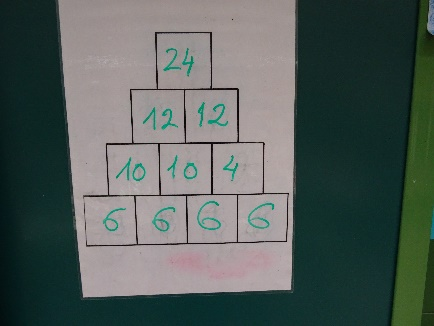 24
12 12
10 10 4
6 6 6 6